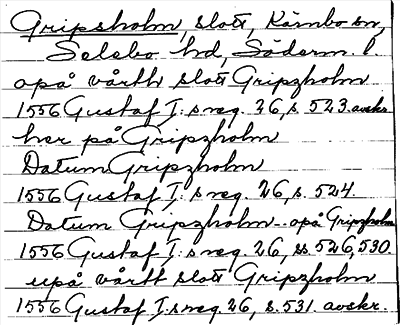 Gripsholm, slott, Kärnbo sn,
Selebo hd, Söderm. l.
opå vårth slott Gripzholm
1556 Gustaf I:s reg. 26, s. 523. avskr.
her på Gripzholm
Datum Gripzholm
1556 Gustaf I:s reg. 26, s. 524.
Datum Gripzholm - opå Gripzholm
1556 Gustaf I:s reg. 26, ss. 526, 530.
upå vårtt slott Gripzholm
1556 Gustaf I:s reg. 26, s. 531. avskr.